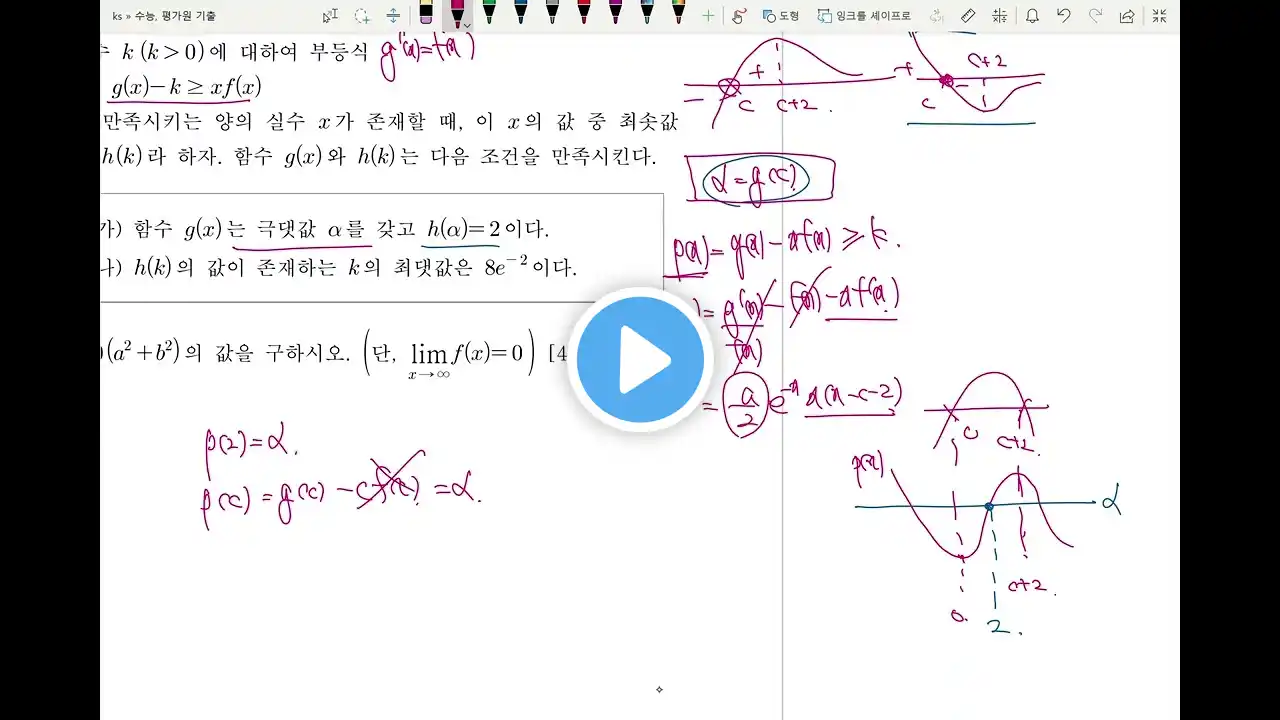 ks » 수능, 평가원 기출
도형
잉크를 셰이프로
k (k>0)에 대하여 부등식
g'(x)=f(x)
g(x)−k ≥ xf(x)
만족시키는 양의 실수 x가 존재할 때, 이 x의 값 중 최솟값
h(k)라 하자. 함수 g(x)와 h(k)는 다음 조건을 만족시킨다.
) 함수 g(x)는 극댓값 α를 갖고 h(α)=2이다.
) h(k)의 값이 존재하는 k의 최댓값은 8e⁻²이다.
(a²+b²)의 값을 구하시오. (단, lim x→∞ f(x)=0) [4
p(2)=α.
p(c)=g(c)−cf(c)=α.
+
−
c
c+2.
+
c+2
c
−
α=g(c)
p(x)=g(x)−xf(x)≥k.
)=g'(x)−f(x)−xf'(x)
f(x)
= a/2 e⁻ˣ x(x−c−2)
c+2.
p(x)
α
c+2.
0.
2.